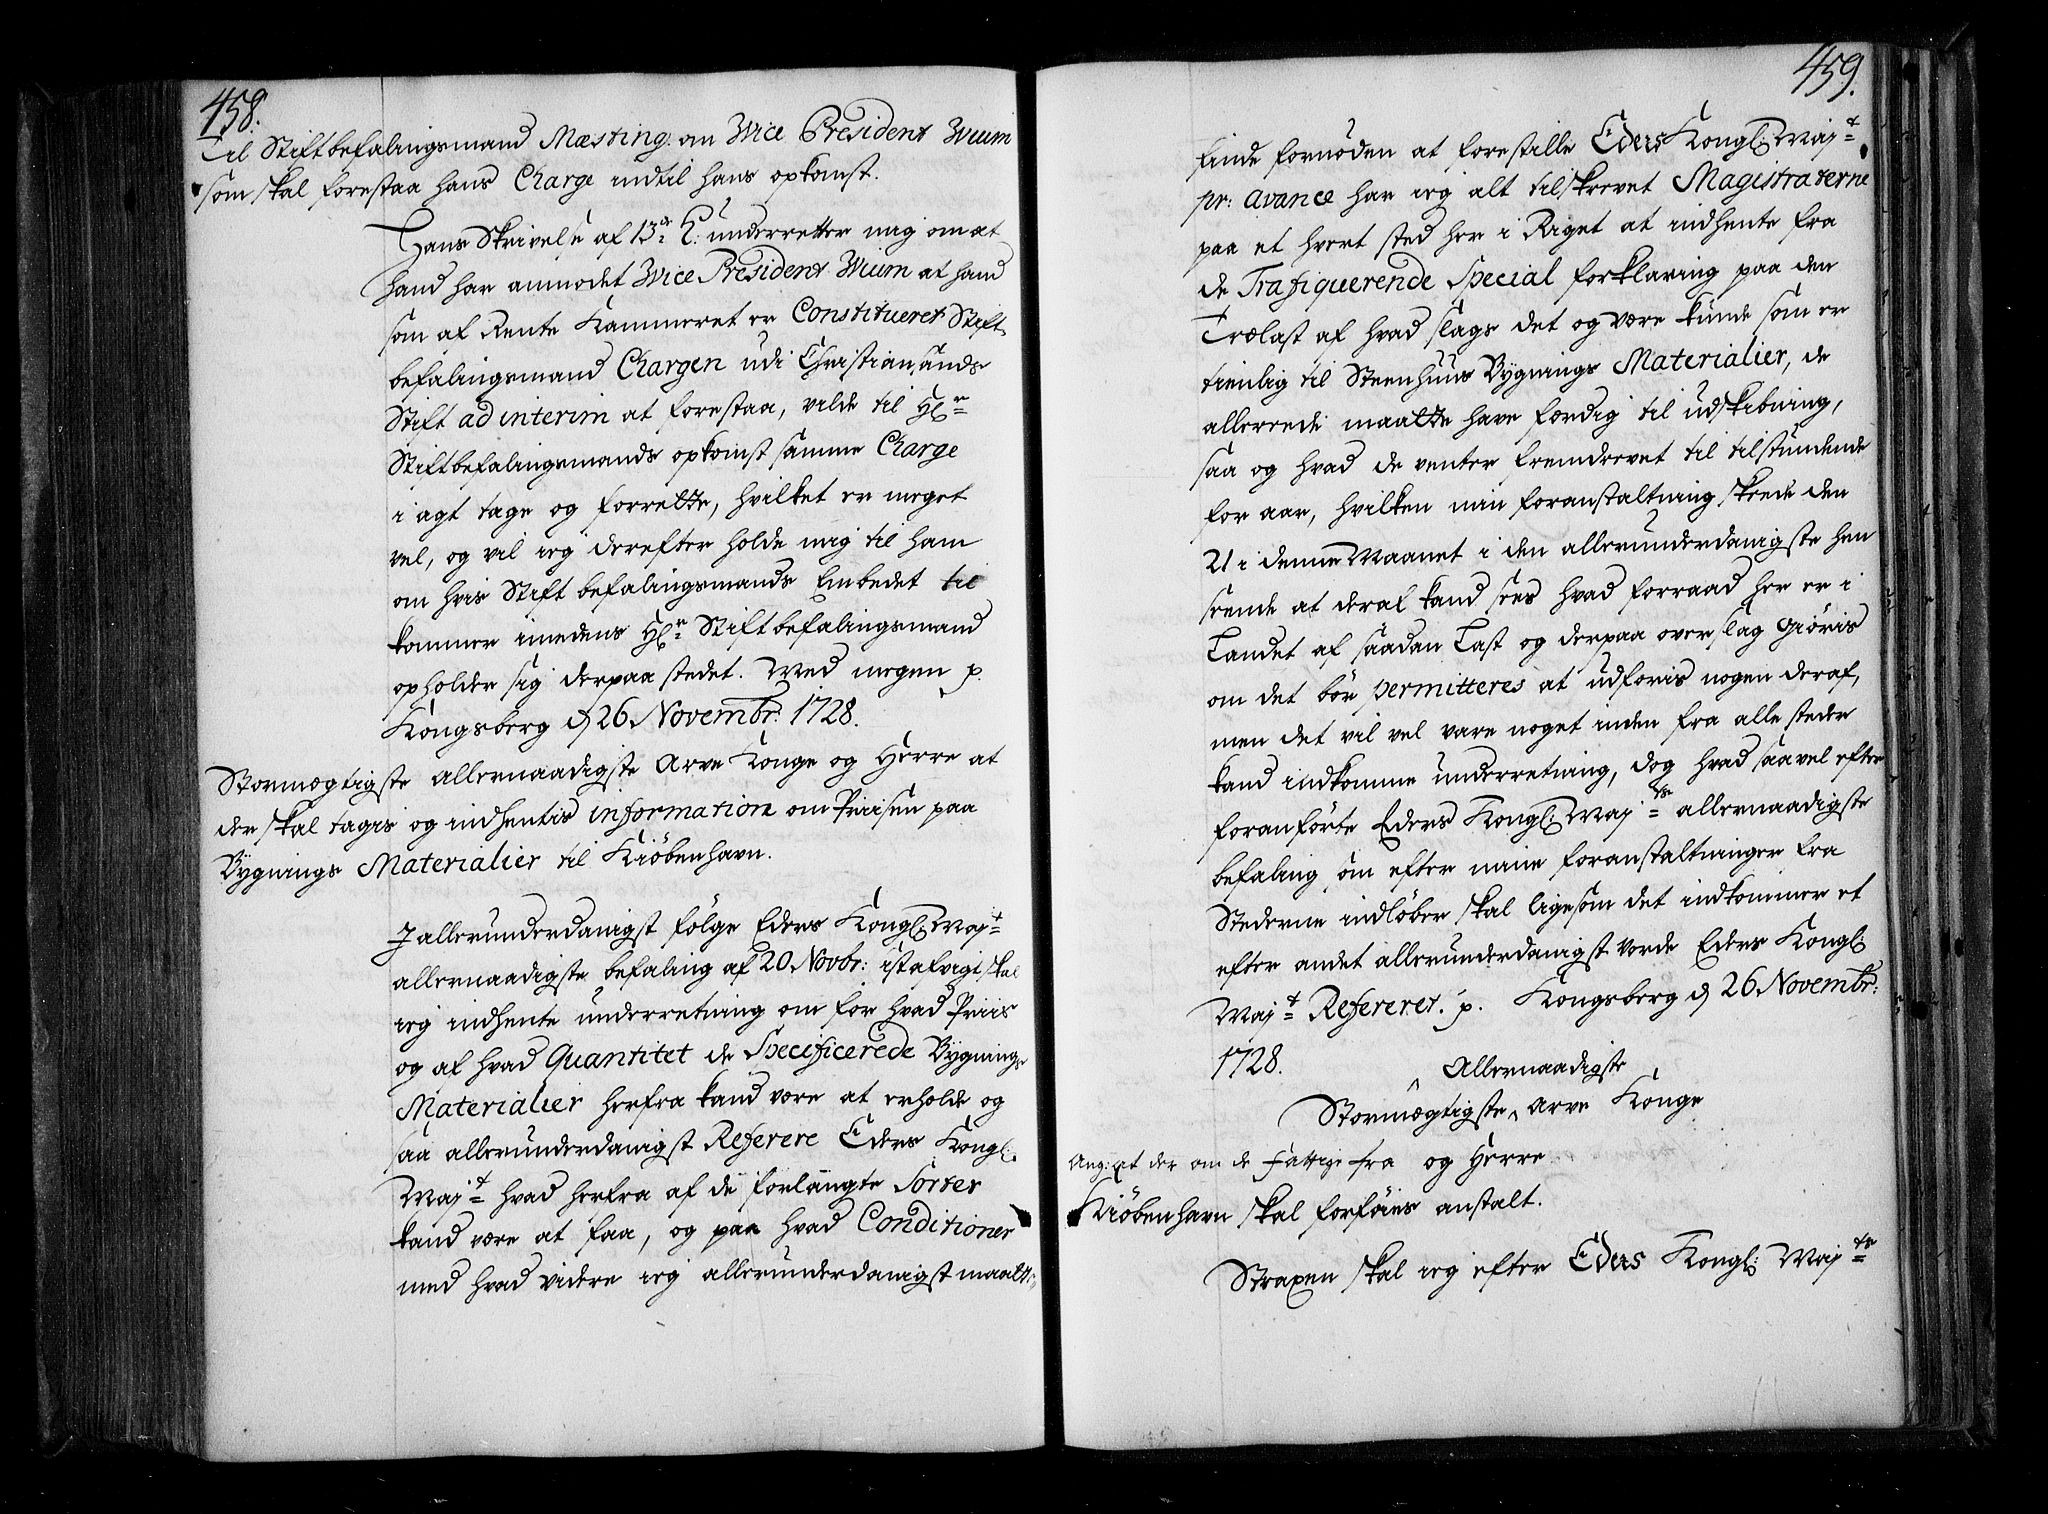 458.
Til Stiftbefalingsmand Mæsting: om Vice President Wium
som skal forestaa hans Charge indtil hans opkomst.
Hans Skrivelse af 13de underretter mig om at
hand har anmodet Vice President Wium at hand
som af Rente Kammeret er Constitueret Stift-
befalingsmand Chargen udi Christiansands
Stift ad interim at forestaa, vilde til Hr
Stiftbefalingsmands opkomst samme Charge
i agt tage og forrette, hvilket er meget
vel, og vil ieg derefter holde mig til ham
om hvis Stiftbefalingsmands Embedet til
kommer imedens Hr Stiftbefalingsmand
opholder sig derpaa stedet. Med megen p.
Kongsberg d 26 Novembr: 1728.
Stormægtigste Allernaadigste Arve Konge og Herre at
der skal tages og indhentis information om Priisen paa
Bygnings Materialier til Kiöbenhavn.
J allerunderdanigst fölge Eders Kongl: Majt
allernaadigste befaling af 20 Novbr: istafvigt skal
ieg indhente underretning om for hvad Priis
og af hvad Quantitet de Specificerede Bygnings
Materialier herfra kand være at erholde og
saa allerunderdanigst Referere Eders Kongl:
Majt hvad herfra af de forlangte Sorter
kand være at faa, og paa hvad Conditioner
med hvad videre ieg allerunderdanigst maatte
459.
finde fornöden at forestille Eders Kongl: Majt
pr: avance har ieg alt tilskrevet Magistraterne
paa et hvert sted her i Riget at indhente fra
de Trafiquerende Special forklaring paa den
Trælast af hvad slags det og være kunde som er
tienlig til Steenhuus Bygnings Materialier, de
allerede maatte have færdig til udskibning,
saa og hvad de venter fremdrevet til tilstundende
for aar, hvilken min foranstaltning skede den
21 i denne Maanet i den allerunderdanigste hen
seende at deraf kand sees hvad forraad her er i
Landet af saadan Last og derpaa overslag giöris
om det bör permitteres at udföris nogen deraf,
men det vil vel vare noget inden fra alle steder
kand indkomme underretning, dog hvad saavel efter
foranförte Eders Kongl: Majts allernaadigste
befaling som efter mine foranstaltninger fra
Stederne indlöber skal ligesom det indkommer et
efter andet allerunderdanigst vorde Eders Kongl:
Majt Refereret. p. Kongsberg d 26 Novembr:
1728.
Allernaadigste
Stormægtigste ^ Arve Konge
og Herre
Ang: at der om de Fattige fra
Kiöbenhavn skal forföies anstalt.
Straxen skal ieg efter Eders Kongl: Majts